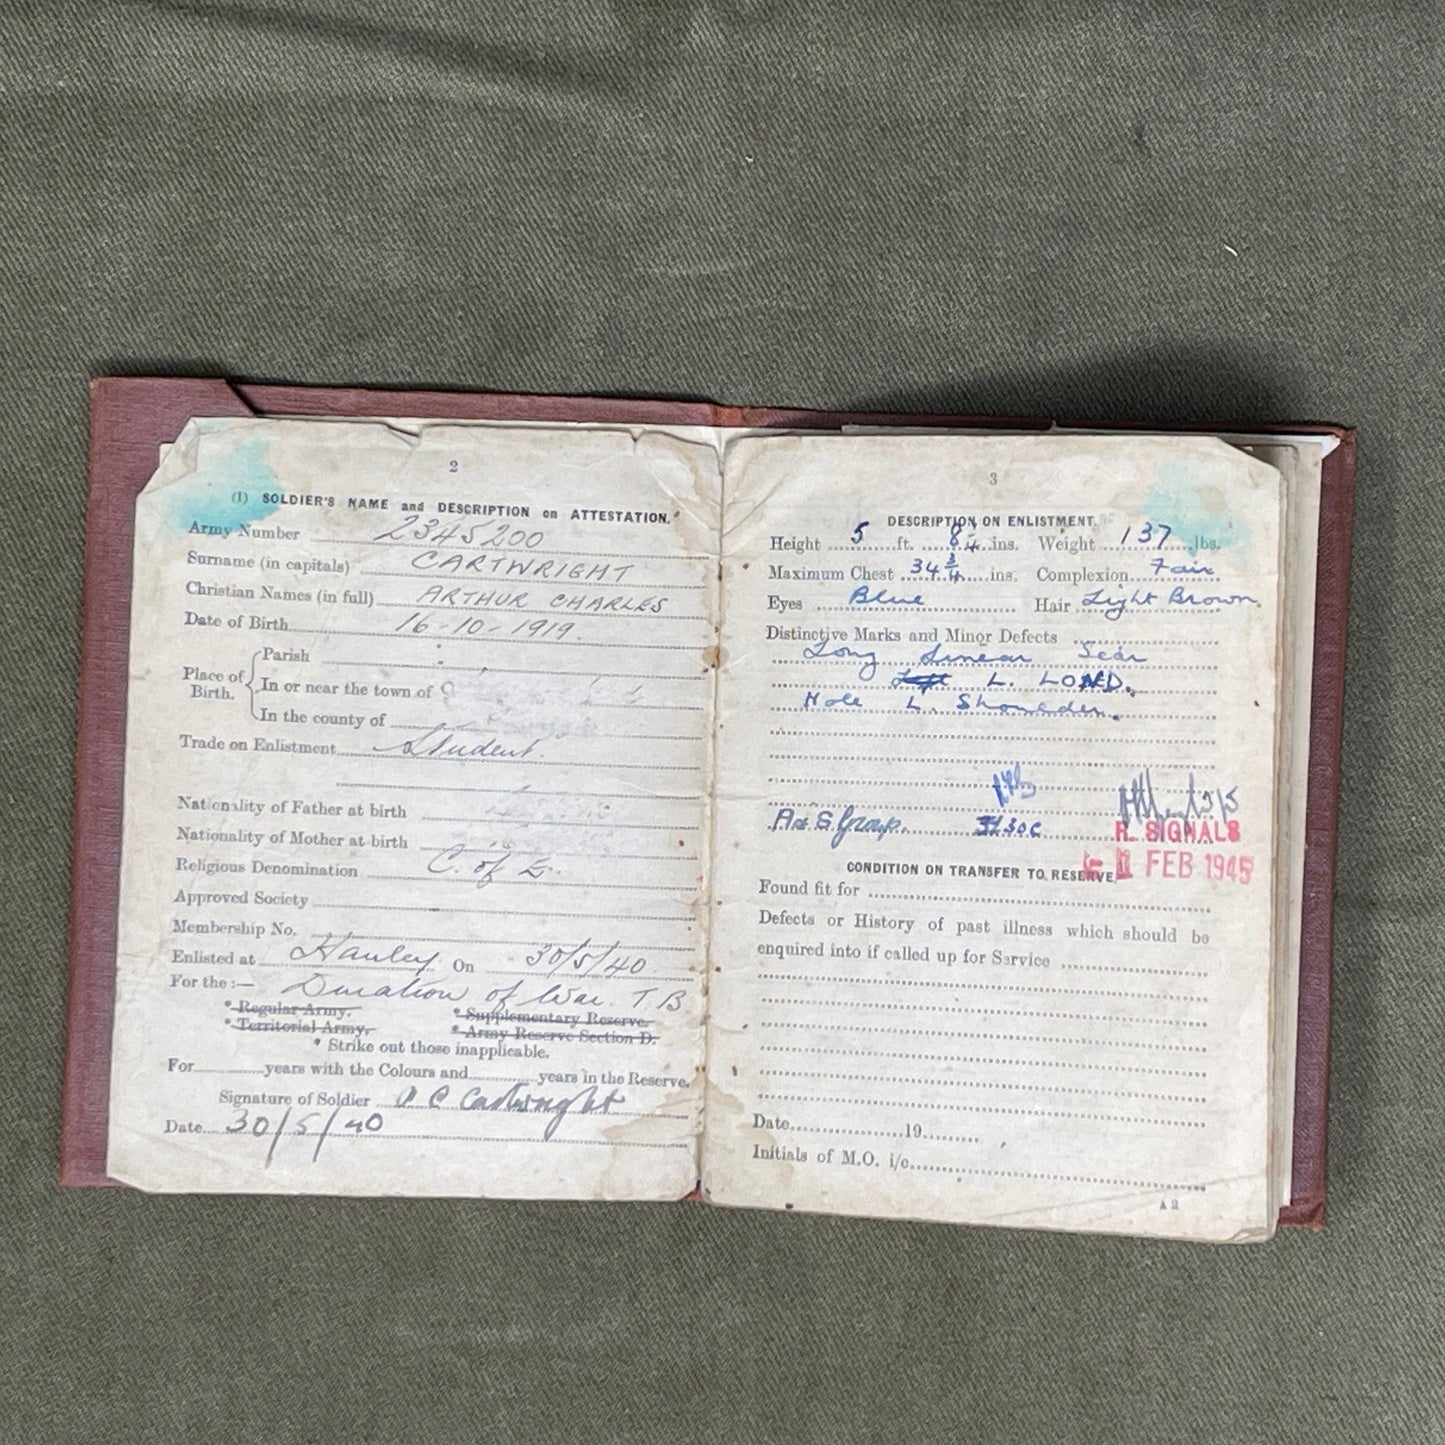 2
(I) SOLDIER'S NAME and DESCRIPTION on ATTESTATION.
Army Number 2345200
Surname (in capitals) CARTWRIGHT
Christian Names (in full) ARTHUR CHARLES
Date of Birth 16-10-1919.
Place of Birth.
Parish
In or near the town of
In the county of
Trade on Enlistment Student.
Nationality of Father at birth
Nationality of Mother at birth
Religious Denomination C. of E.
Approved Society
Membership No.
Enlisted at Hanley On 30/5/40.
For the :— Duration of War. T.B
* Regular Army. * Supplementary Reserve.
* Territorial Army. * Army Reserve Section D.
* Strike out those inapplicable.
For years with the Colours and years in the Reserve.
Signature of Soldier A C Cartwright
Date 30/5/40
3
DESCRIPTION ON ENLISTMENT.
Height 5 ft. ins. Weight 137 lbs.
Maximum Chest 34 3/4 ins. Complexion Fair
Eyes Blue Hair Light Brown.
Distinctive Marks and Minor Defects
Long Linear Scar
Left L. LOND.
Mole L. Shoulder.
A & S Group. 30C
R. SIGNALS
FEB 1945
CONDITION ON TRANSFER TO RESERVE
Found fit for
Defects or History of past illness which should be
enquired into if called up for Service
Date 19
Initials of M.O. i/c
A 2